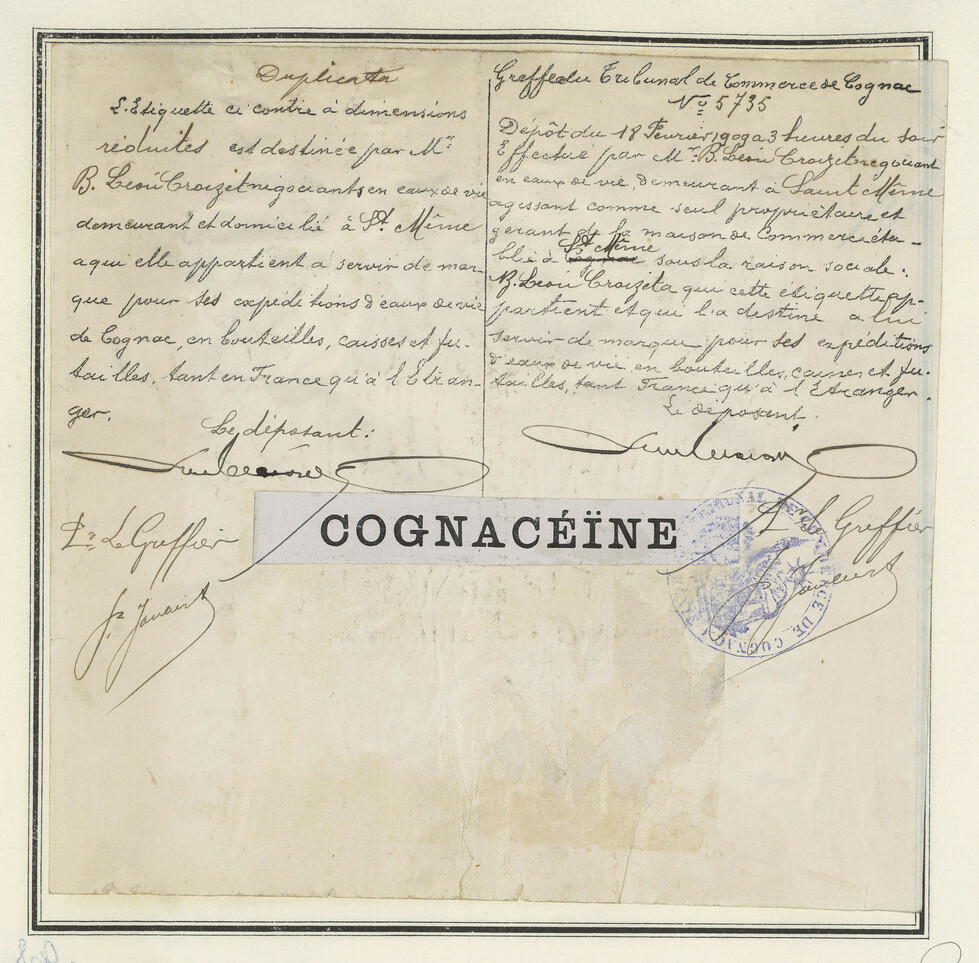 Duplicata
L'Etiquette ci contre à dimensions
réduites est destinée par Mr
B. Léon Croizet négociants en eaux de vie
demeurant et domicilié à St. Même
a qui elle appartient à servir de mar-
que pour ses expéditions d'eaux de vie
de Cognac, en bouteilles, caisses et fu-
tailles, tant en France qu'à l'Etran-
ger.
Le déposant:
Pr. Le Greffier
Greffe du Tribunal de Commerce de Cognac
No 5735
Dépôt du 18 Février 1909 a 3 heures du soir
Effectué par Mr. B. Léon Croizet negociant
en eaux de vie, demeurant à Saint Même
agissant comme seul propriétaire et
gerant de la maison de Commerce éta-
St Même
blié à Cognac sous la raison sociale:
B. Léon Croizet a qui cette étiquette ap-
partient et qui l'a destine a lui
servir de marque pour ses expéditions
d'eaux de vie en bouteilles, caisses et fu-
tailles, tant France qu'à l'Etranger.
Le déposant.
Pr Le Greffier
COGNACÉÏNE
TRIBUNAL DE COMMERCE DE COGNAC